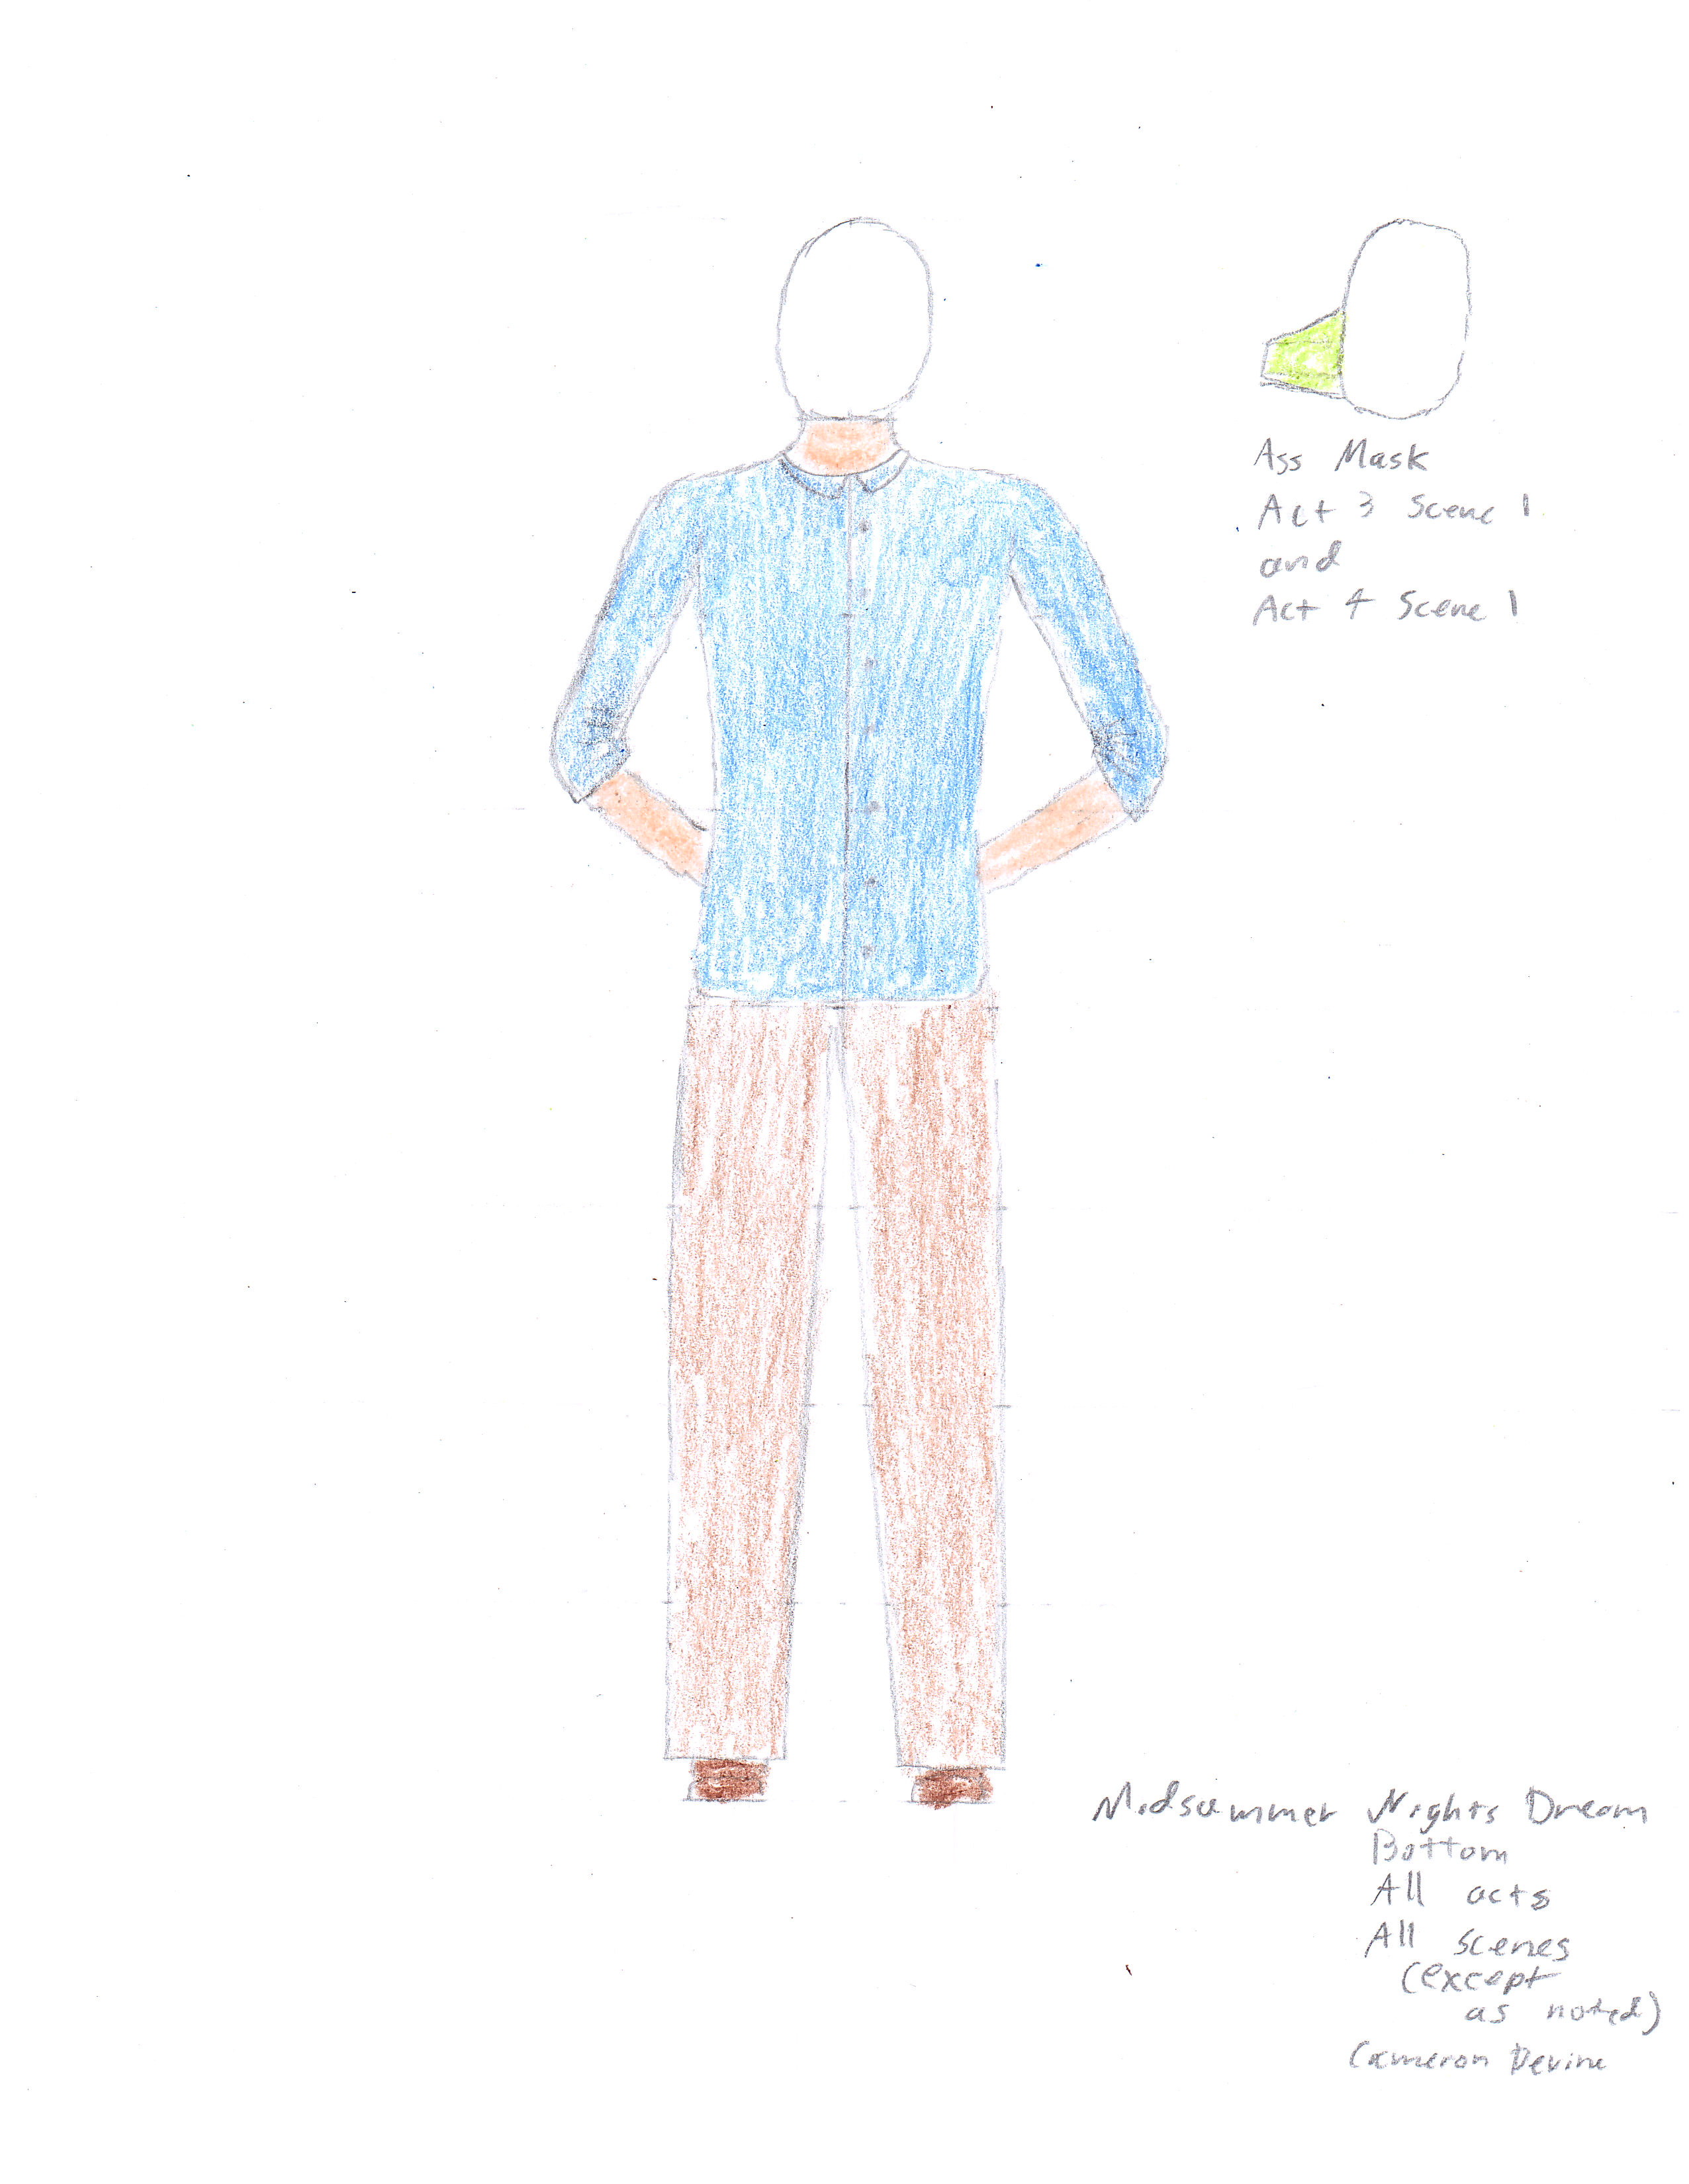 Ass Mask
Act 3 Scene 1
and
Act 4 Scene 1
Midsummer Nights Dream
Bottom
All acts
All scenes
(except
as noted)
Cameron Devine